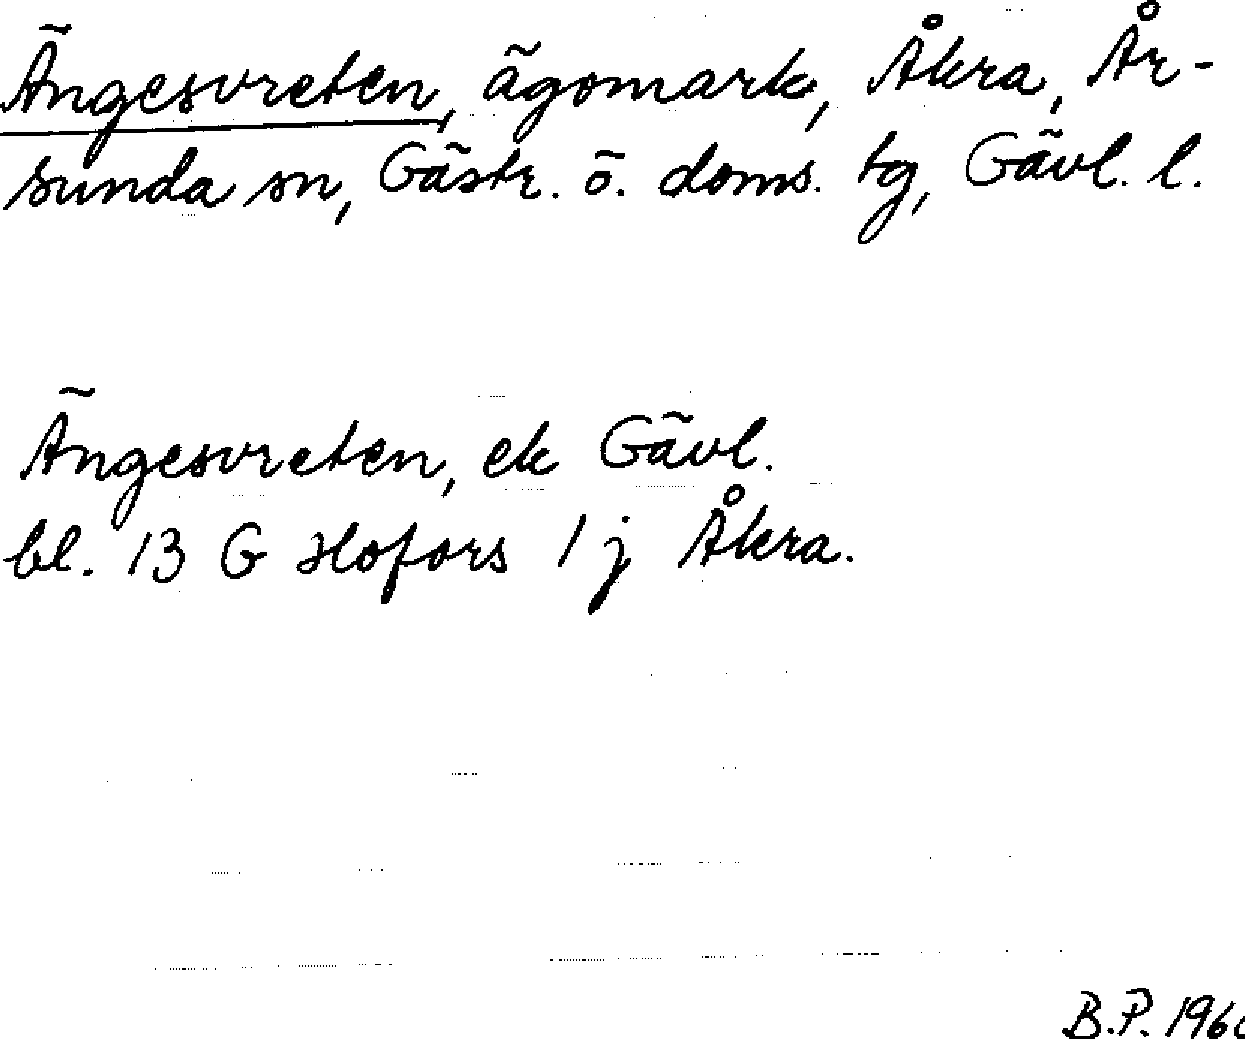 Ängesvreten, ägomark, Åkra, År-
sunda sn, Gästr. ö. doms. tg, Gävl. l.
Ängesvreten, ek Gävl.
bl. 13 G Hofors 1 j Åkra.
B.P.